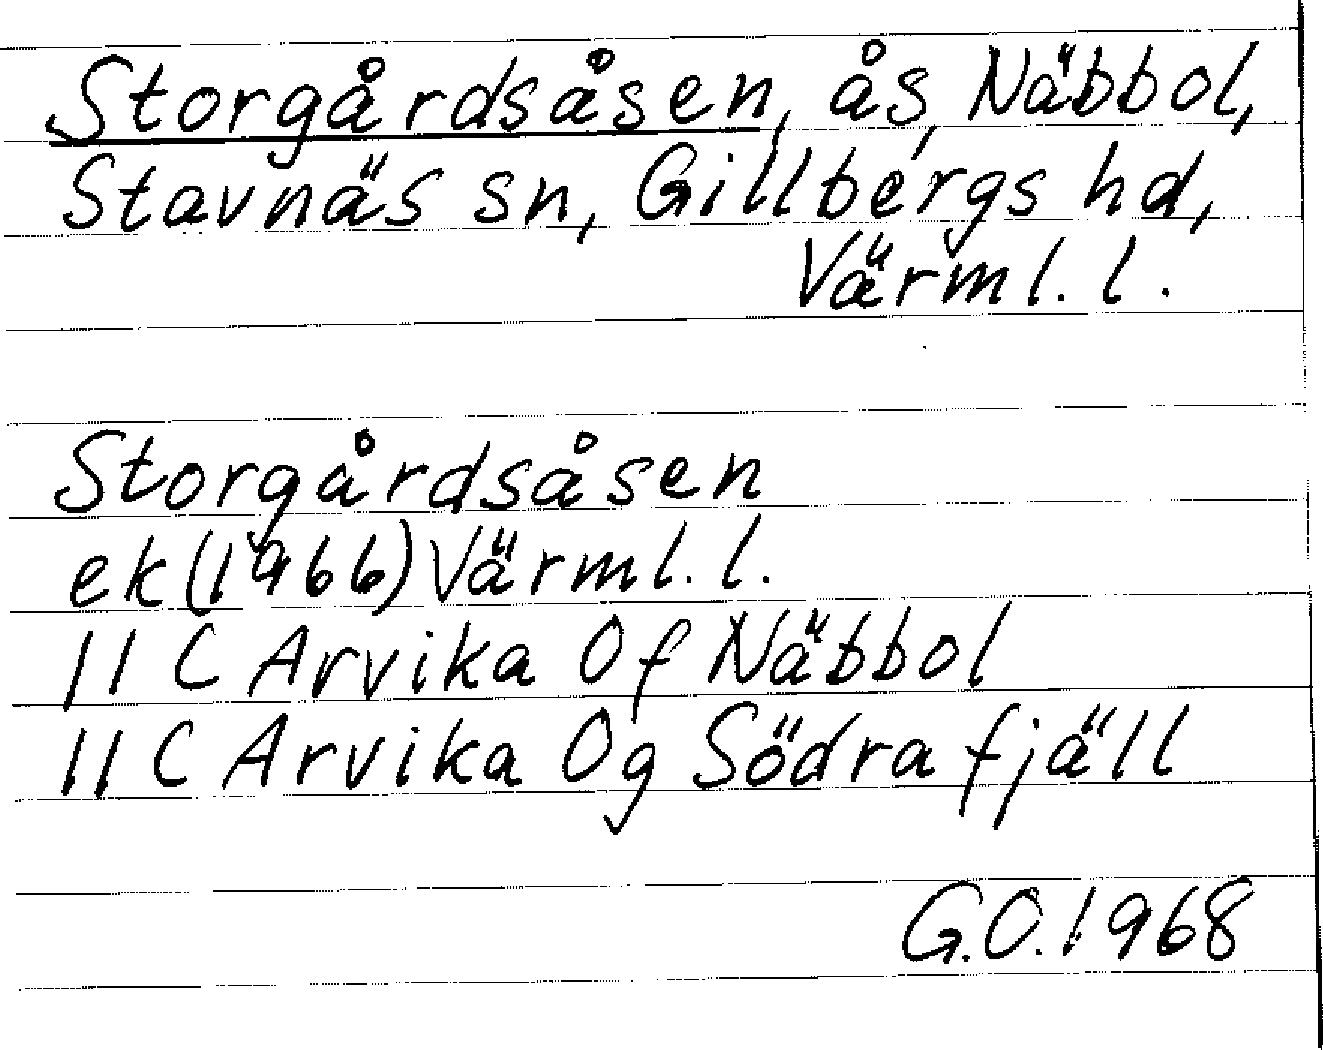 Storgårdsåsen, ås, Näbbol,
Stavnäs sn, Gillbergs hd,
Värml. l.
Storgårdsåsen
ek (1966) Värml. l.
11 C Arvika 0f Näbbol
11 C Arvika 0g Södra fjäll
G.O. 1968